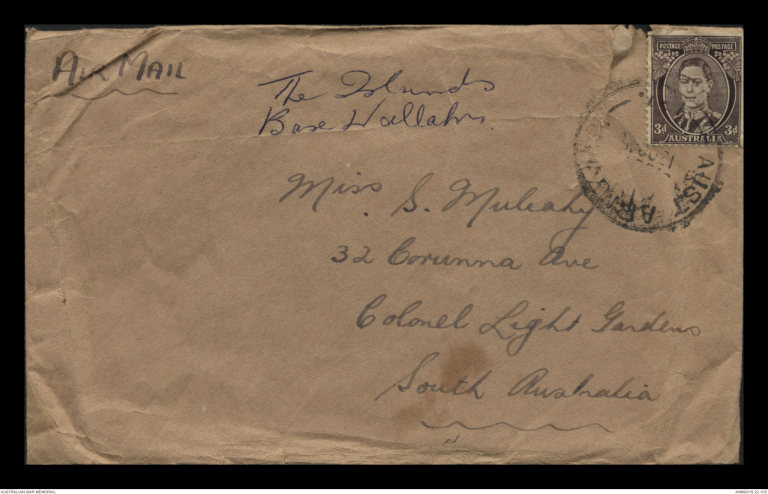 AIR MAIL
The Islands
Base Wallahs.
POSTAGE POSTAGE
3d 3d
AUSTRALIA
Miss S. Mulcahy
32 Corunna Ave
Colonel Light Gardens
South Australia
AUSTRALIAN WAR MEMORIAL